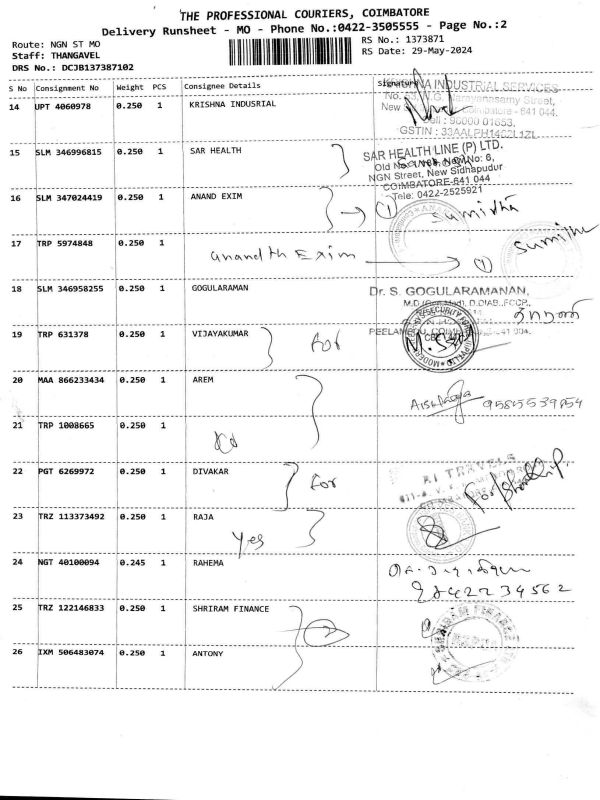 THE PROFESSIONAL COURIERS, COIMBATORE
Delivery Runsheet - MO - Phone No.:0422-3505555 - Page No.:2
Route: NGN ST MO
RS No.: 1373871
Staff: THANGAVEL
RS Date: 29-May-2024
DRS No.: DCJB137387102
S No Consignment No Weight PCS Consignee Details Signature
14 UPT 4060978 0.250 1 KRISHNA INDUSRIAL
INDUSTRIAL SERVICES
Narayanasamy Street,
641 044.
GSTIN :
15 SLM 346996815 0.250 1 SAR HEALTH
SAR HEALTH LINE (P) LTD.
NGN Street, New Sidhapudur
COIMBATORE-641 044
Tele: 0422-2525921
16 SLM 347024419 0.250 1 ANAND EXIM
1 Sumitha
17 TRP 5974848 0.250 1
Anandth Exim 1
18 SLM 346958255 0.250 1 GOGULARAMAN
Dr. S. GOGULARAMANAN,
19 TRP 631378 0.250 1 VIJAYAKUMAR
20 MAA 866233434 0.250 1 AREM
21 TRP 1008665 0.250 1
22 PGT 6269972 0.250 1 DIVAKAR
for
TRAVELS
23 TRZ 113373492 0.250 1 RAJA
Yes
24 NGT 40100094 0.245 1 RAHEMA
9842234562
25 TRZ 122146833 0.250 1 SHRIRAM FINANCE
2
26 IXM 506483074 0.250 1 ANTONY